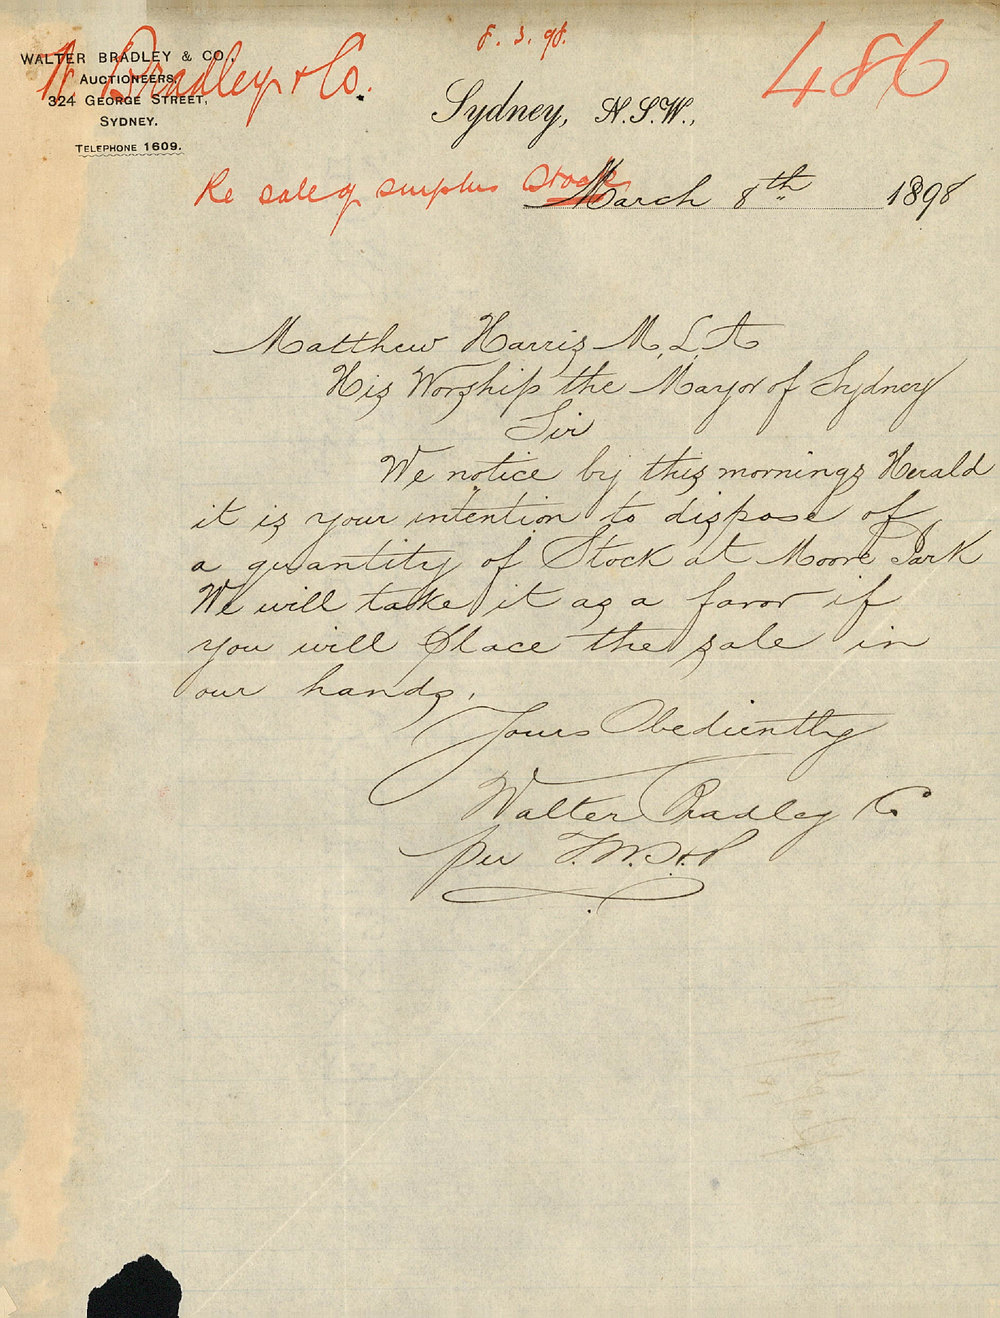 8.3.98.
486
W. Bradley & Co.
WALTER BRADLEY & CO.,
AUCTIONEERS,
324 GEORGE STREET,
SYDNEY.
TELEPHONE 1609.
Sydney, N.S.W.,
Re sale of surplus Stock
March 8th 1898
Matthew Harris M.L.A
His Worship the Mayor of Sydney
Sir
We notice by this mornings Herald
it is your intention to dispose of
a quantity of Stock at Moore Park
We will take it as a favor if
you will place the sale in
our hands.
Yours Obediently
Walter Bradley & Co
per